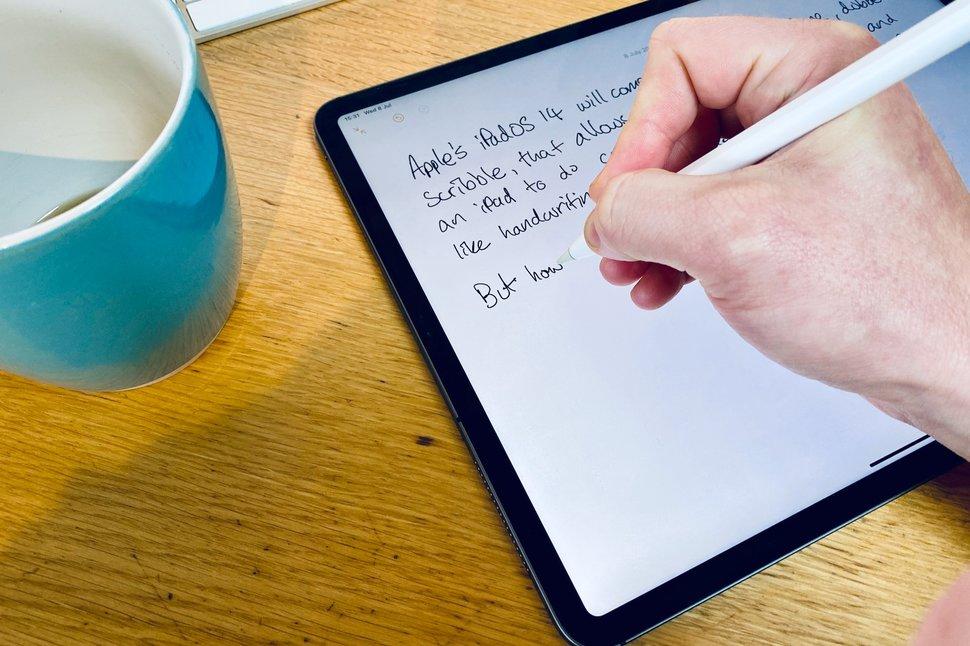 15:31 Wed 8 Jul
8 July
Apple's iPadOS 14 will
scribble, that allows
and
an iPad to do
like handwritin
But how